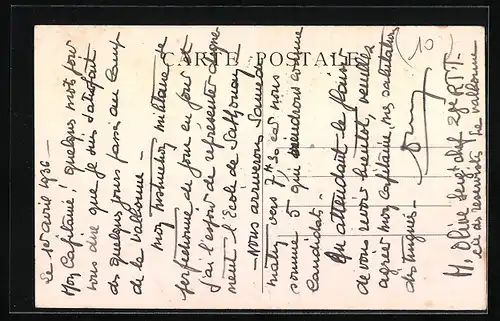 CARTE POSTALE
10
Le 10 avril 1936 —
Mon Capitaine! Quelques mots pour
vous dire que je suis satisfait
des quelques jours passés au Camp
de la Valbonne —
Mon Instruction militaire se
perfectionne de jour en jour et
j'ai l'espoir de représenter digne
ment l'Ecole de Sathonay —
— Nous arriverons Samedi
matin vers 7h30 car nous
sommes 5 qui viendrons comme
candidats.
En attendant le plaisir
de vous revoir bientôt, veuillez
agréer mon Capitaine, mes salutations
distinguées —
M. Olive Sergt chef 28e RTT.
des de Valbonne